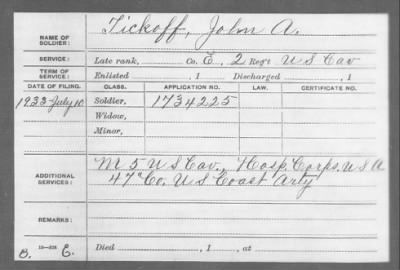 NAME OF SOLDIER: Tickoff, John A.
SERVICE: Late rank, Co. E, 2 Reg't U S Cav
TERM OF SERVICE: Enlisted , 1 Discharged , 1
DATE OF FILING. CLASS. APPLICATION NO. LAW. CERTIFICATE NO.
1933 July 10 Soldier, 1734225
Widow,
Minor,
ADDITIONAL SERVICES: M 5 U S Cav., Hosp. Corps. U S A
47" Co. U S Coast Arty
REMARKS:
B. E. Died , 1 , at